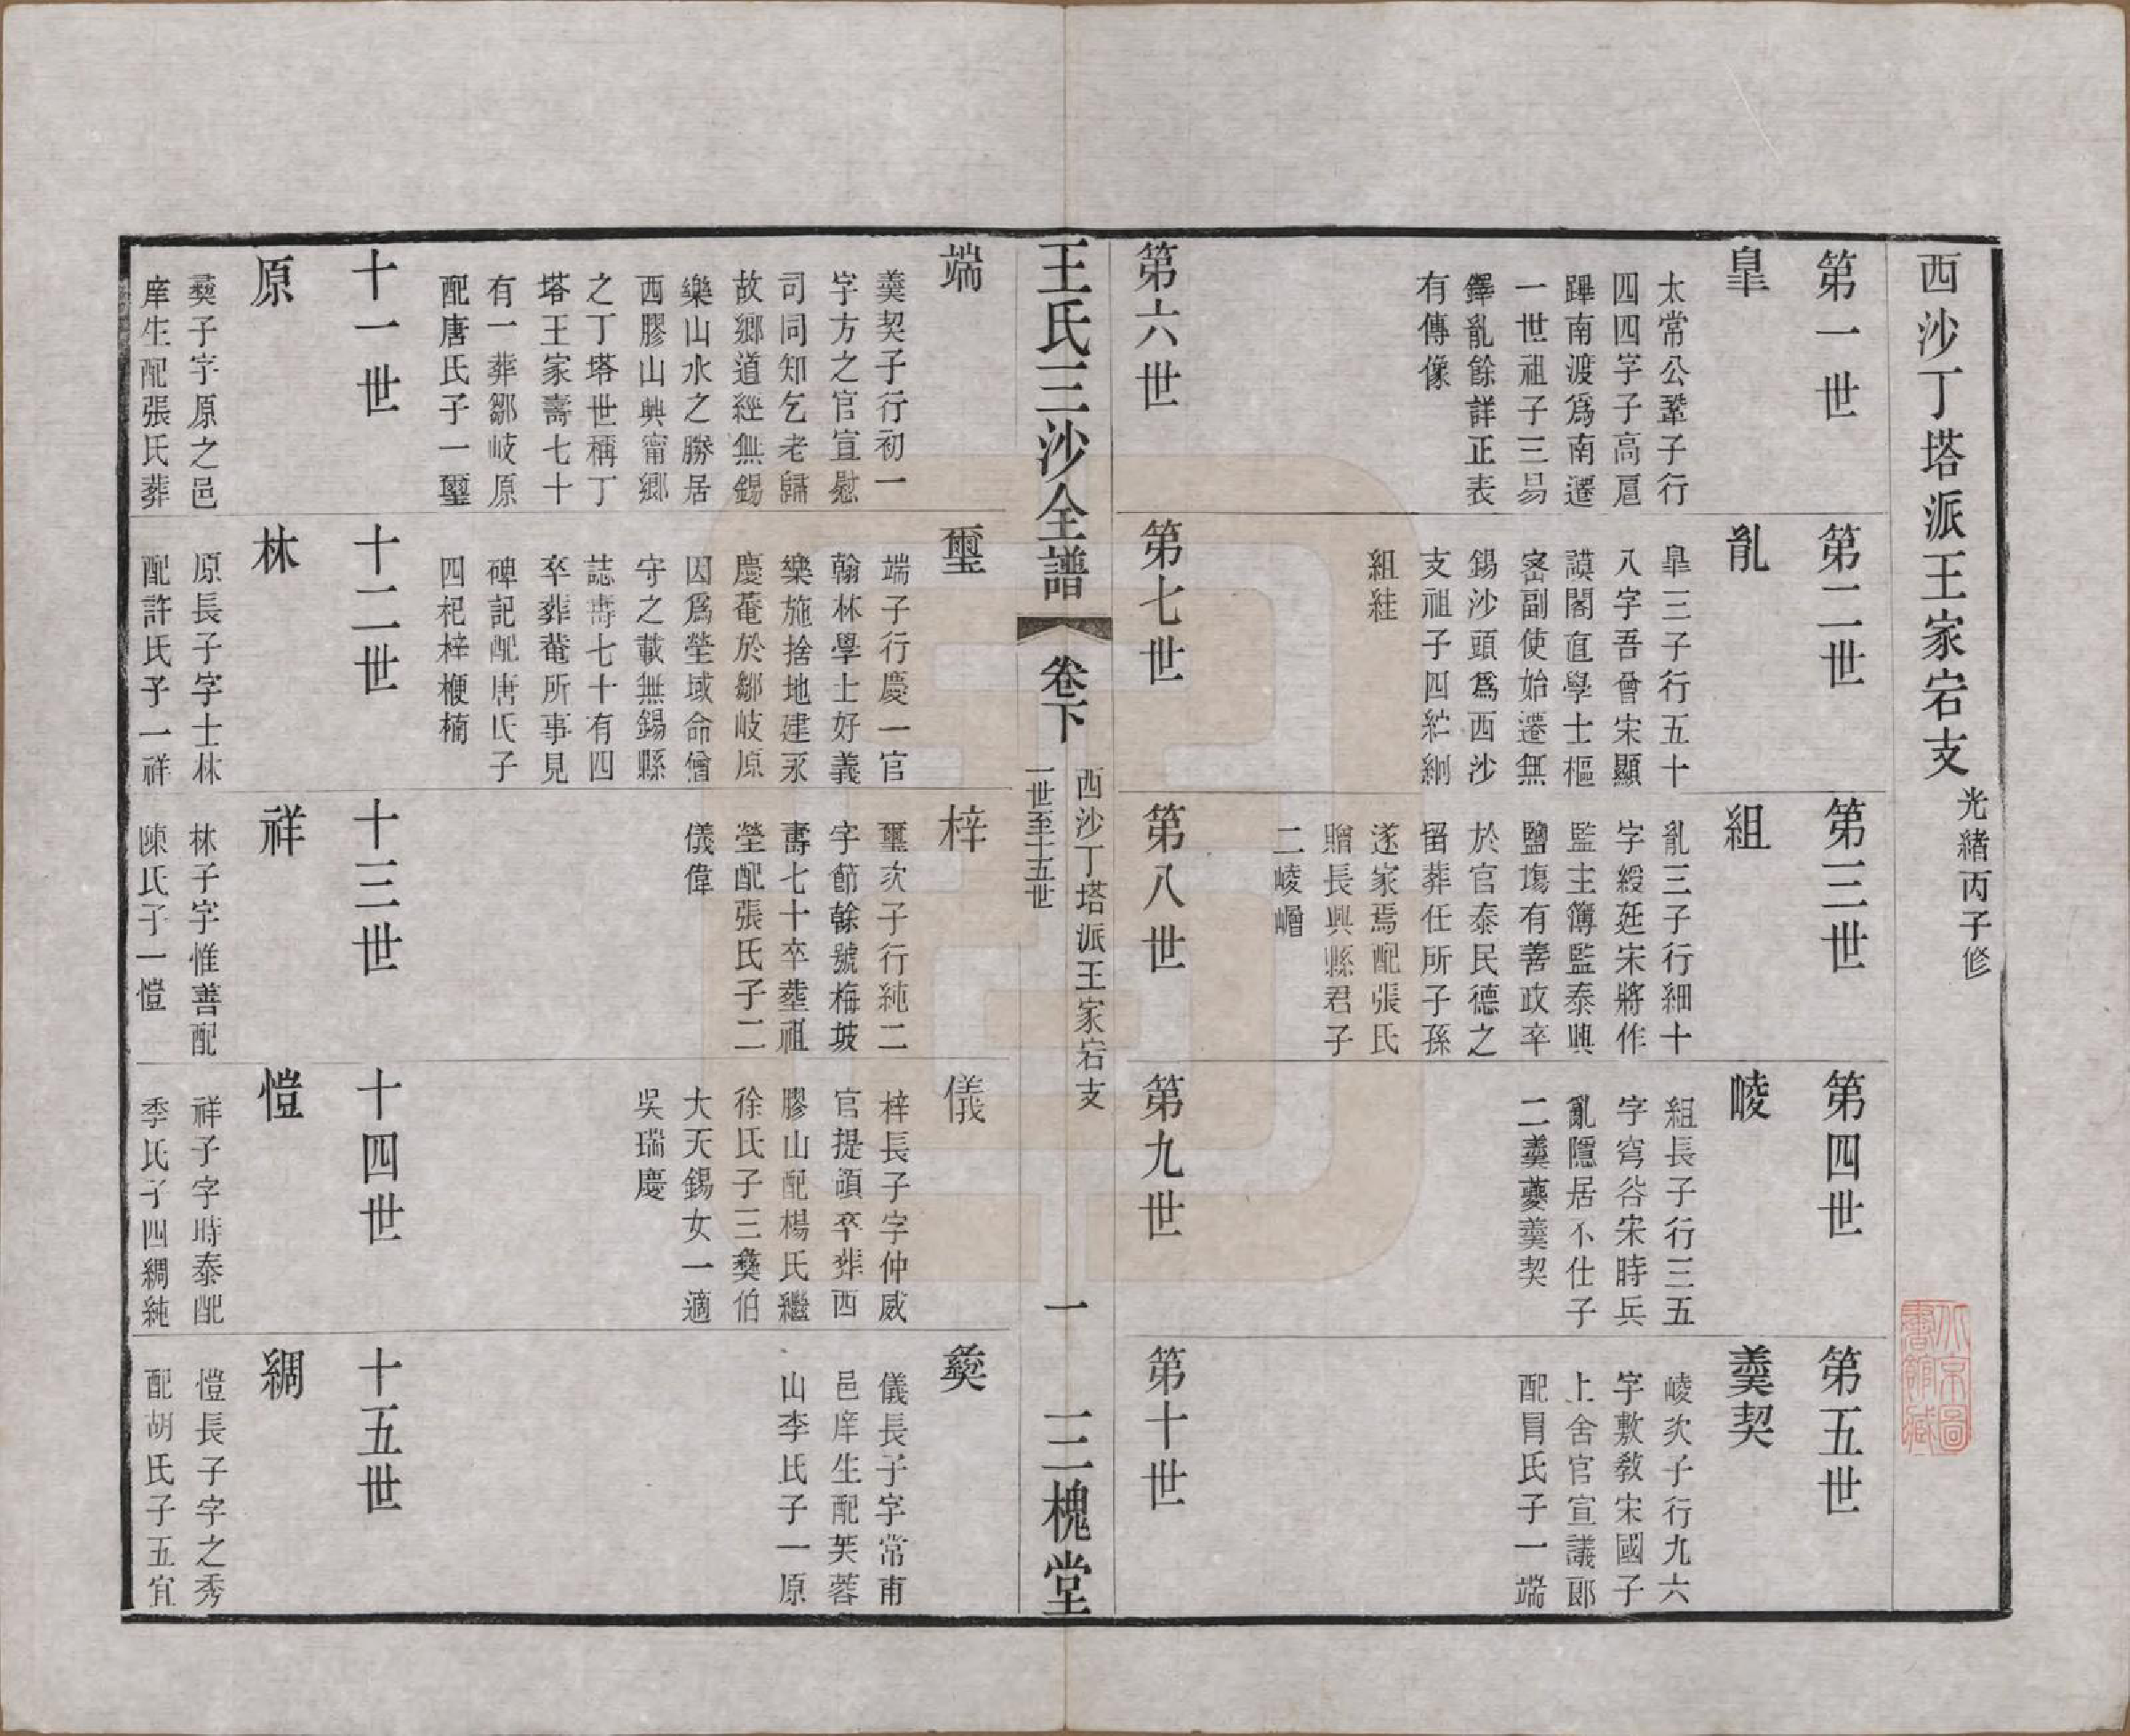 西沙丁塔派王家宕支
光緒丙子修
第一世
皐
太常公鞏子行
四四字子高扈
蹕南渡爲南遷
一世祖子三易
鐸亂餘詳正表
有傳像
第二世
亂
皐三子行五十
八字吾曾宋顯
謨閣直學士樞
密副使始遷無
錫沙頭爲西沙
支祖子四 絅
組絓
第三世
組
亂三子行細十
字綬廷宋將作
監主簿監泰興
鹽塲有善政卒
於官泰民德之
留葬任所子孫
遂家焉配張氏
贈長興縣君子
二崚嶒
第四世
崚
組長子行三五
字穹谷宋時兵
亂隱居不仕子
二羹蘷羹契
第五世
羹契
崚次子行九六
字敷敎宋國子
上舍官宣議郎
配冐氏子一端
第六世
第七世
第八世
第九世
第十世
王氏三沙全譜
卷下
西沙丁塔派王家宕支
一世至十五世
一
三槐堂
端
羹契子行初一
字方之官宣慰
司同知乞老歸
故鄉道經無錫
樂山水之勝居
西膠山興甯鄉
之丁塔世稱丁
塔王家壽七十
有一葬鄒岐原
配唐氏子一璽
璽
端子行慶一官
翰林學士好義
樂施捨地建永
慶菴於鄒岐原
因爲塋域命僧
守之載無錫縣
誌壽七十有四
卒葬菴所事見
碑記配唐氏子
四杞梓楩楠
梓
璽次子行純二
字節榦號梅坡
壽七十卒塟祖
塋配張氏子二
儀偉
儀
梓長子字仲威
官提領卒葬西
膠山配楊氏繼
徐氏子三彜伯
大天錫女一適
吳瑞慶
彜
儀長子字常甫
邑庠生配芙蓉
山李氏子一原
十一世
原
彜子字原之邑
庠生配張氏葬
十二世
林
原長子字士林
配許氏子一祥
十三世
祥
林子字惟善配
陳氏子一愷
十四世
愷
祥子字時泰配
季氏子四綢純
十五世
綢
愷長子字之秀
配胡氏子五宜
北京圖
書館藏